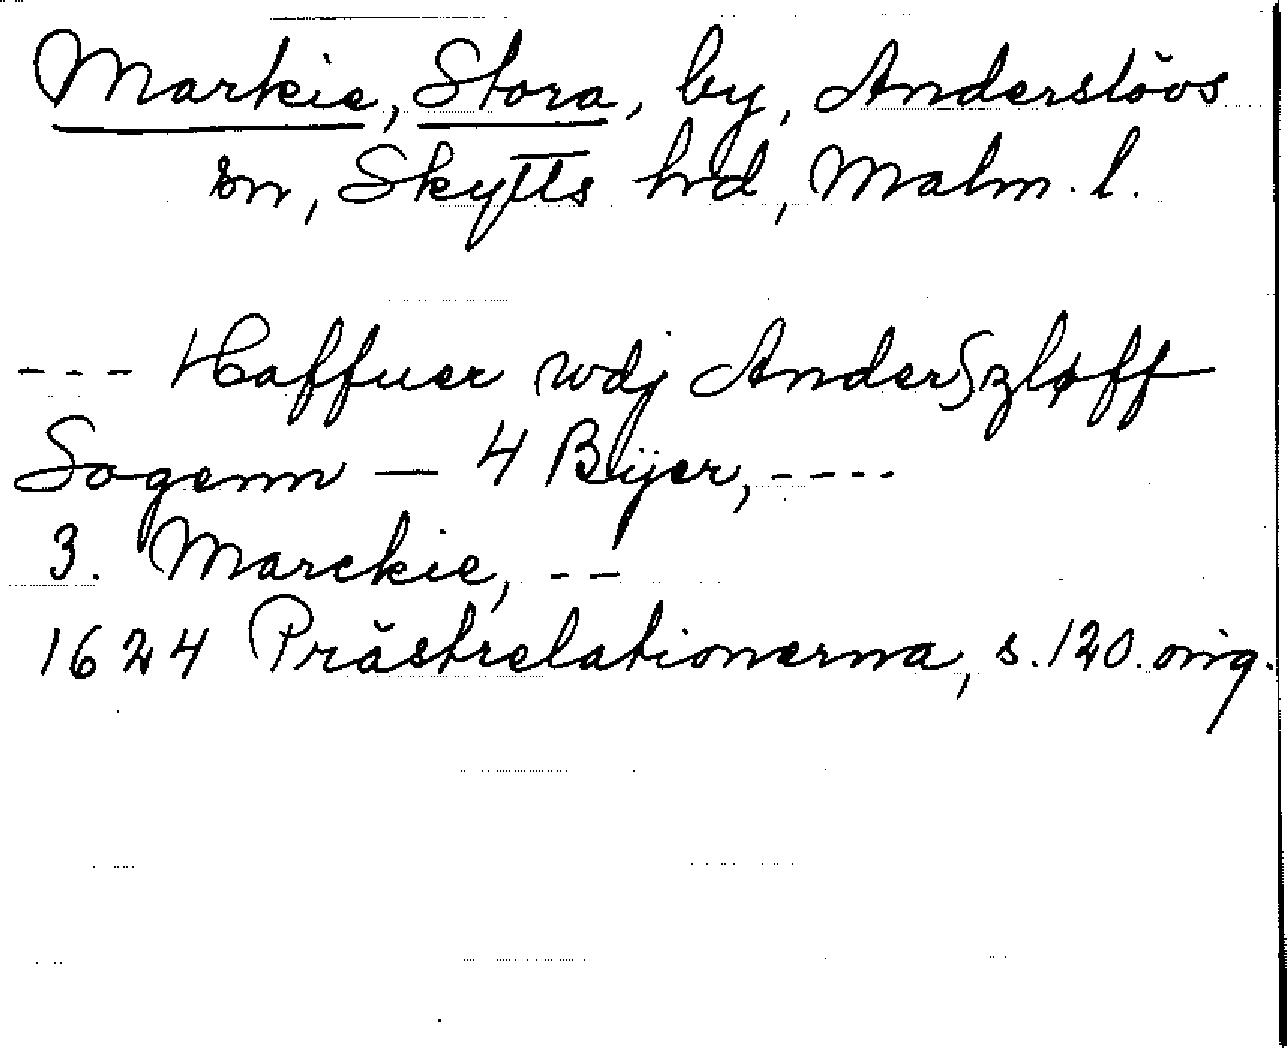 Markie, Stora, by, Anderslövs
sn, Skytts hrd, Malm. l.
--- Haffuer wdj Anderſzløff
Sogenn — 4 Bÿer, ----
3. Marckie, --
1624 Prästrelationerna, s. 120. orig.